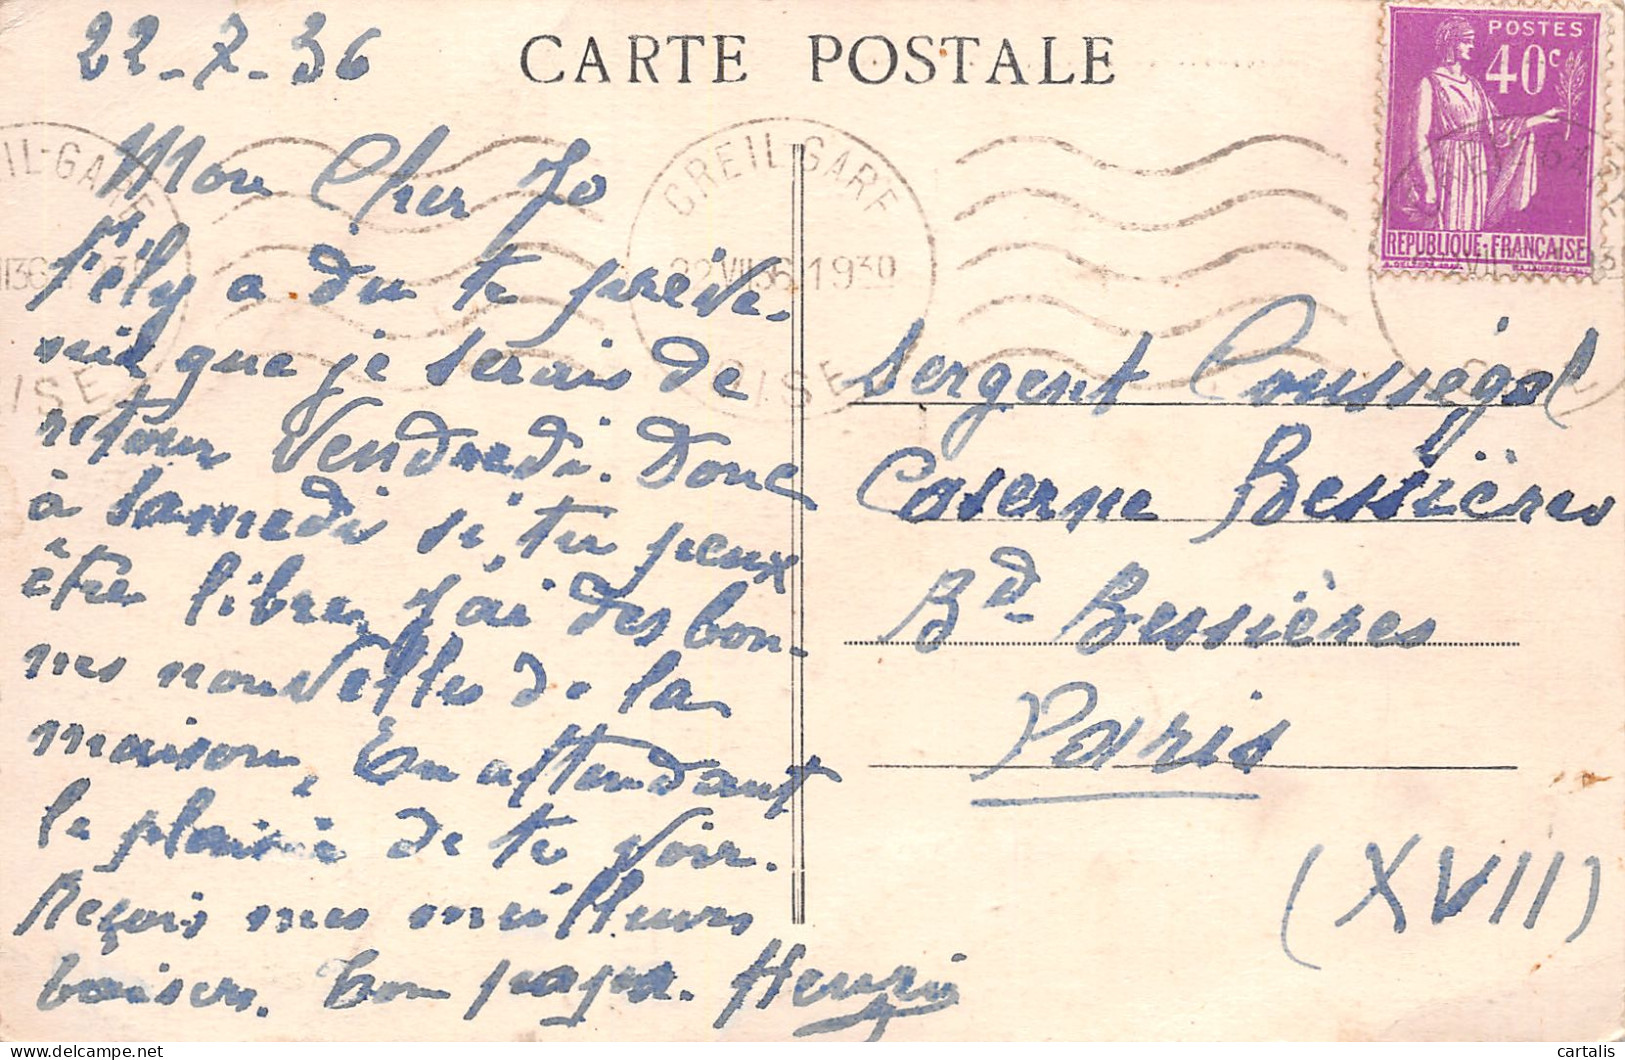 22-7-36
CARTE POSTALE
POSTES
40c
REPUBLIQUE FRANÇAISE
CREIL-GARE
22 VII 36 1930
OISE
Mon Cher Jo
a du te préve-
nir que je serais de
retour Vendredi. Donc
à samedi si tu peux
être libre, j'ai des bon-
nes nouvelles de la
maison, En attendant
le plaisir de te voir.
Reçois mes meilleurs
baisers. Bon papa. Henri
Sergent Cousségal
Caserne Bessières
Bd Bessières
Paris
(XVII)
cartalis